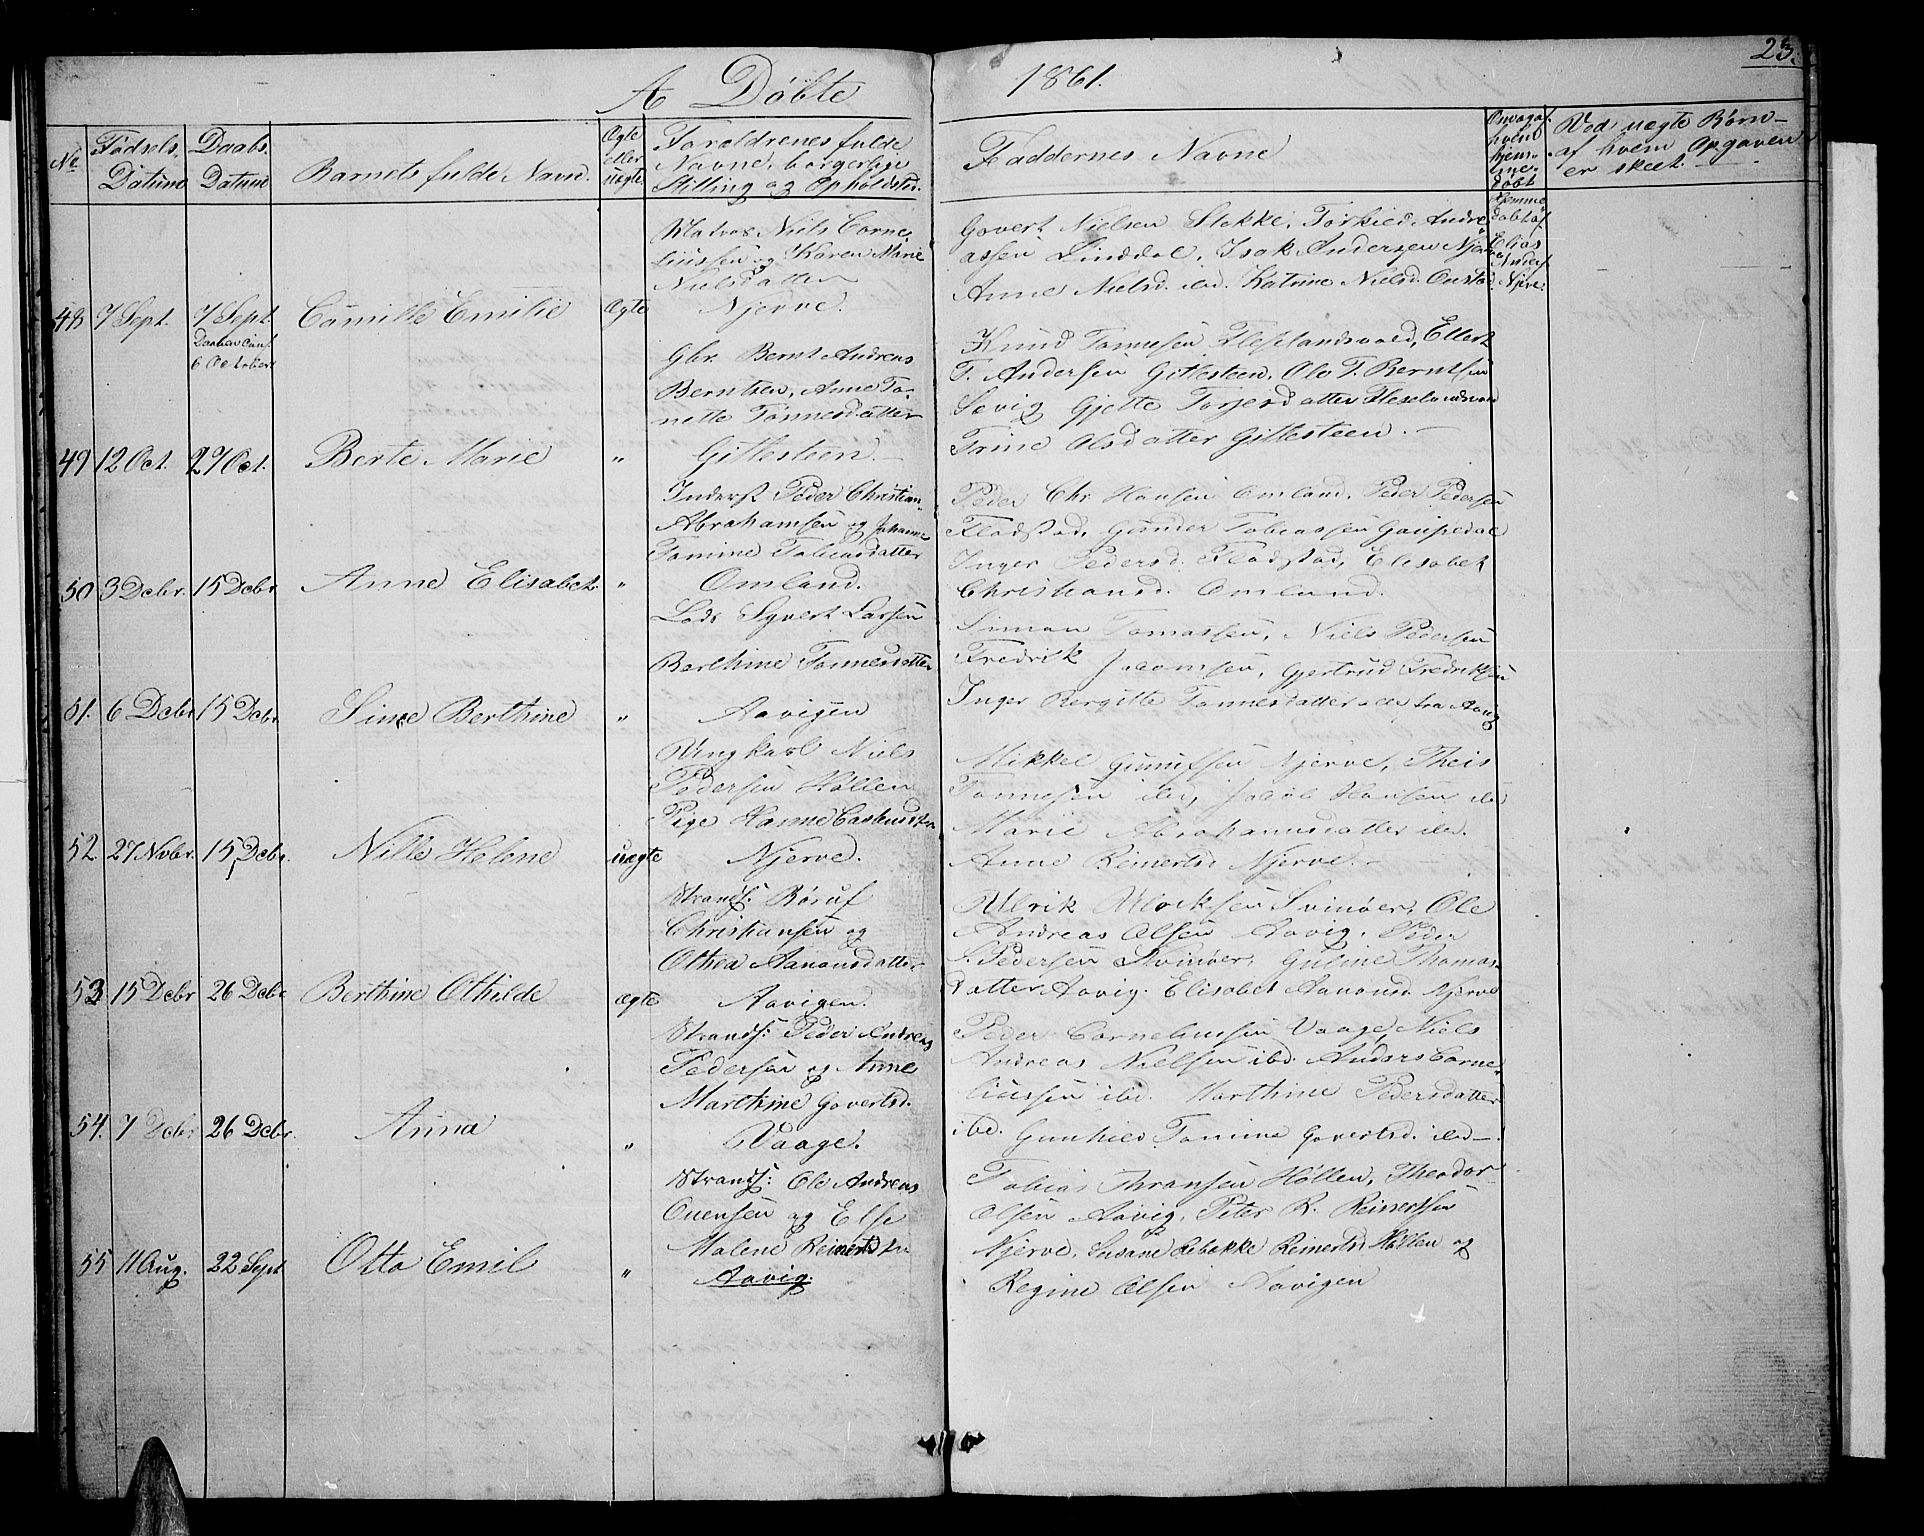 23.
A Døbte 1861.
No
Fødsels Datum
Daabs Datum
Barnets fulde Navn.
Ægte eller uægte
Forældrenes fulde Navne, borgerlige Stilling og Opholdsted.
Faddernes Navne
hvem hjemmedøbt
Ved uægte Børn af hvem Opgaven er skeet.
48 7 Sept. 7 Sept. Camille Emilie Ægte
6 October
Matros Niels Corne-
liussen og Karen Marie
Nielsdatter
Njerve.
Govert Nielsen Stokke, Torkied Andre-
assen Linddal, Isak Andersen Njerve
Anne Nielsd. ibd. Katrine Nielsd. Oustad
Hjemme
døbt af
Elias
Anders.
Njerve
49 12 Oct. 27 Oct. Berte Marie "
Gbr. Bernt Andreas
Berntsen, Anne To-
nette Tønnesdatter
Gitlesteen.
Knud Tønnesen Fleslandsvold, Ellert
T. Andersen Gitlesteen, Ole T. Berntsen
Søvig Gjette Torjersdatter
Trine Olsdatter Gitlesteen.
50 3 Dcbr. 15 Dcbr. Anne Elisabet "
Inderst Peder Christian
Abrahamsen og Johanne
Tomine Tobiasdatter
Omland.
Peder Chr. Hansen Omland, Peder Pedersen
Fladstad, Gunder Tobiassen Gaupedal
Inger Pedersd. Fladstad, Elisabet
Christiansd. Omland.
51. 6 Dcbr 15 Dcbr. Sine Berthine "
Lods Syvert Larsen
Berthine Tønnesdatter
Aavigen
Simon Tomassen, Niels Pedersen
Fredrik Joacomsen, Gjertrud Fredriksen
Inger Bergitte Tønnesdatter alle fra Aavig
52. 27 Novbr. 15 Dcbr. Nille Helene uægte
Ungkarl Niels
Pedersen Høllen
Pige Hanne
Njerve.
Mikkel Gunufsen Njerve, Theis
Tønnesen ibd, Jacob Hansen ibd
Marie Abrahamsdatter ibd.
Anne Reinertsd. Njerve.
53 15 Dcbr 26 Dcbr Berthine Othilde ægte
Strands: Børuf
Christiansen og
Othea Aanonsdatter
Aavigen.
Ulrik Ulriksen Svinøer, Ole
Andreas Olsen Aavig, Peder
S. Pedersen Svinøer, Guline Thomas-
datter Aavig. Elisabet Aanonsd. Njerve
54. 7 Dcbr 26 Dcbr. Anna "
Strands: Peder Andreas
Pedersen og Anne
Marthine Govertsd.
Vaage.
Peder Corneliussen Vaage, Niels
Andreas Nielsen ibd. Anders Corne-
liussen ibd. Marthine Pedersdatter
ibd. Gunhild Tomine Govertsd. ibd.
55 11 Aug. 22 Sept Otto Emil "
Strands: Ole Andreas
Ouensen og Else
Malene Reinertsdtr
Aavig.
Tobias Thransen Høllen, Theodor
Olsen Aavig, Peter R. Reinertsen
Njerve, Susane Rebekke Reinertsd. Høllen og
Regine Olsen Aavigen